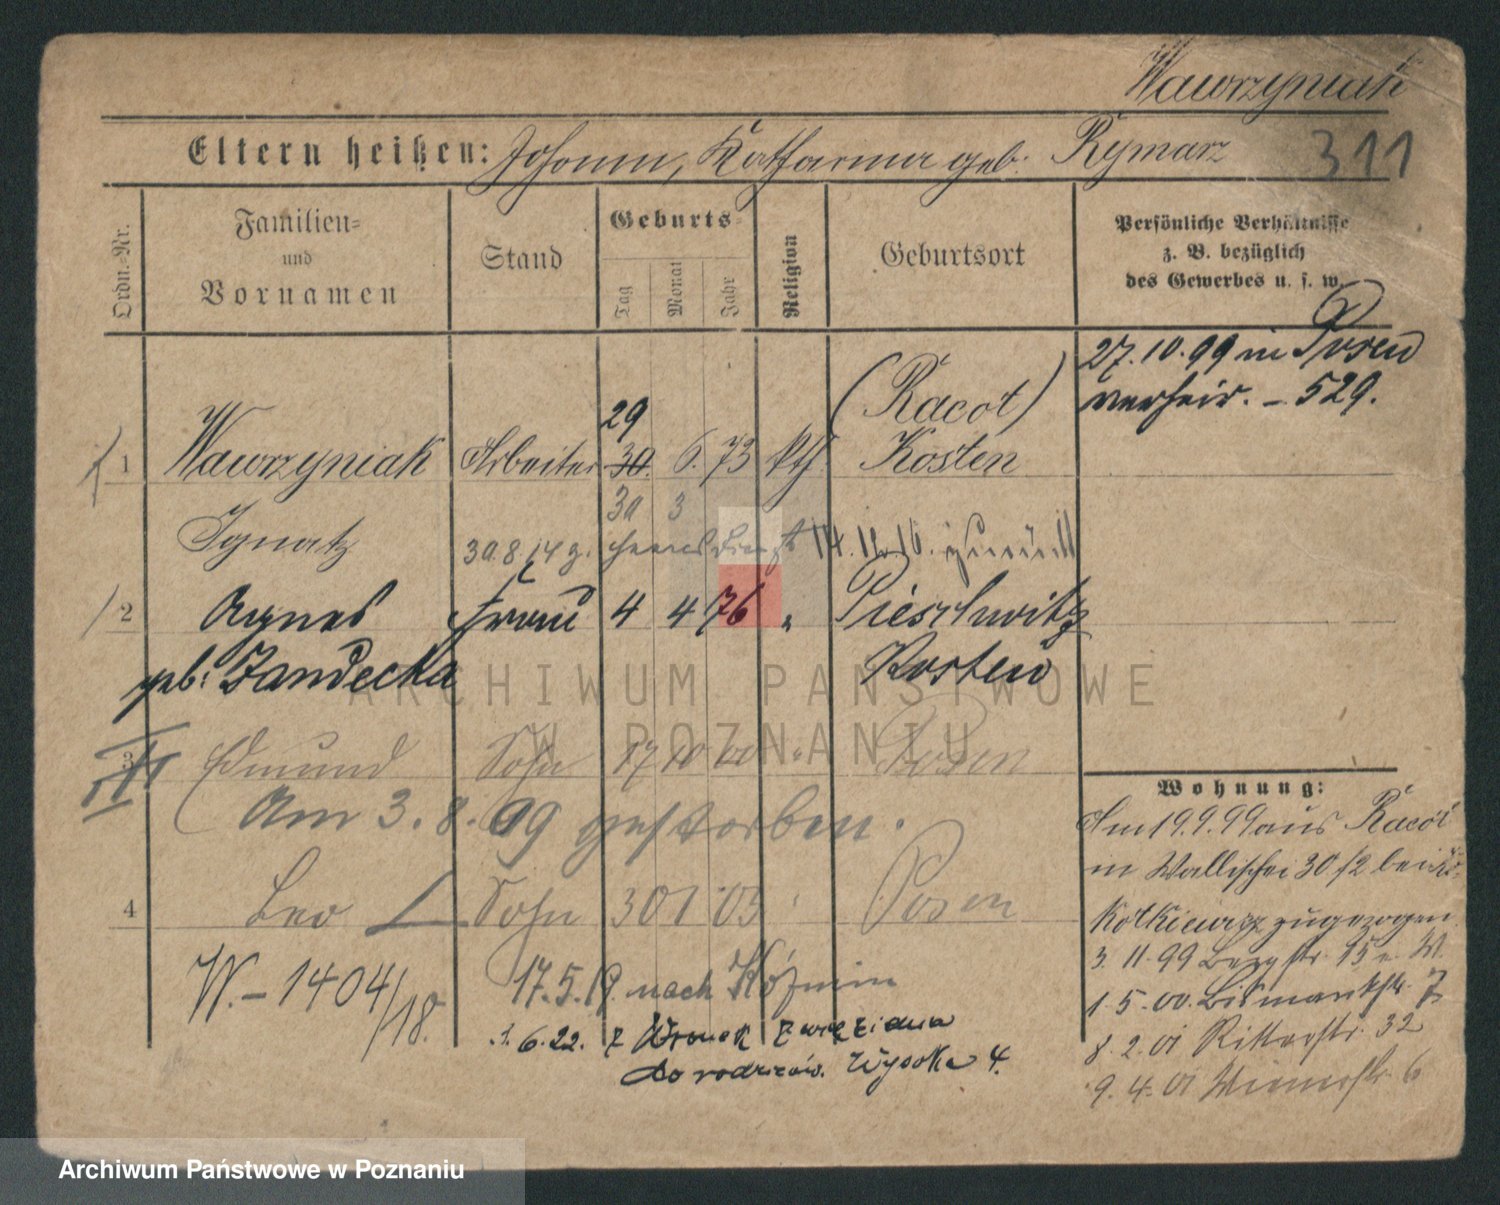 Wawrzyniak
Eltern heißen: Johann, Katharina geb. Rymarz 311
Ordn.-Nr.
Familien-
und
Vornamen
Stand
Geburts-
Tag
Monat
Jahr
Religion
Geburtsort
Persönliche Verhältnisse
z. B. bezüglich
des Gewerbes u. s. w.
27.10.99 in Posen
verheir. – 529.
29
(Racot)
1 Wawrzyniak Arbeiter 30. 6. 73 kth. Kosten
30 3
Ignatz 30.8.14 z. Heeresdienst 14.12.16. zurück
2 Agnes Frau 4 4 76 " Pieschwitz
geb. Jandecka Kosten
3 Edmund Sohn 17 10 00 " Posen
Am 3.8.09 gestorben.
4 Leo Sohn 30 1 03 " Posen
W. – 1404/18. 17.5.19. nach Kozmin
1.6.22. z Wronek z więzienia
do rodziców. Wysoka 4.
Wohnung:
Am 19.9.99 aus Racot
in Wallischei 30/2 bei
zugezogen
3.11.99 Bergstr. 15
1.5.00. Bismarkstr. 7
8.2.01 Ritterstr. 32
9.4.01 Wienerstr. 6
ARCHIWUM PAŃSTWOWE
W POZNANIU
Archiwum Państwowe w Poznaniu